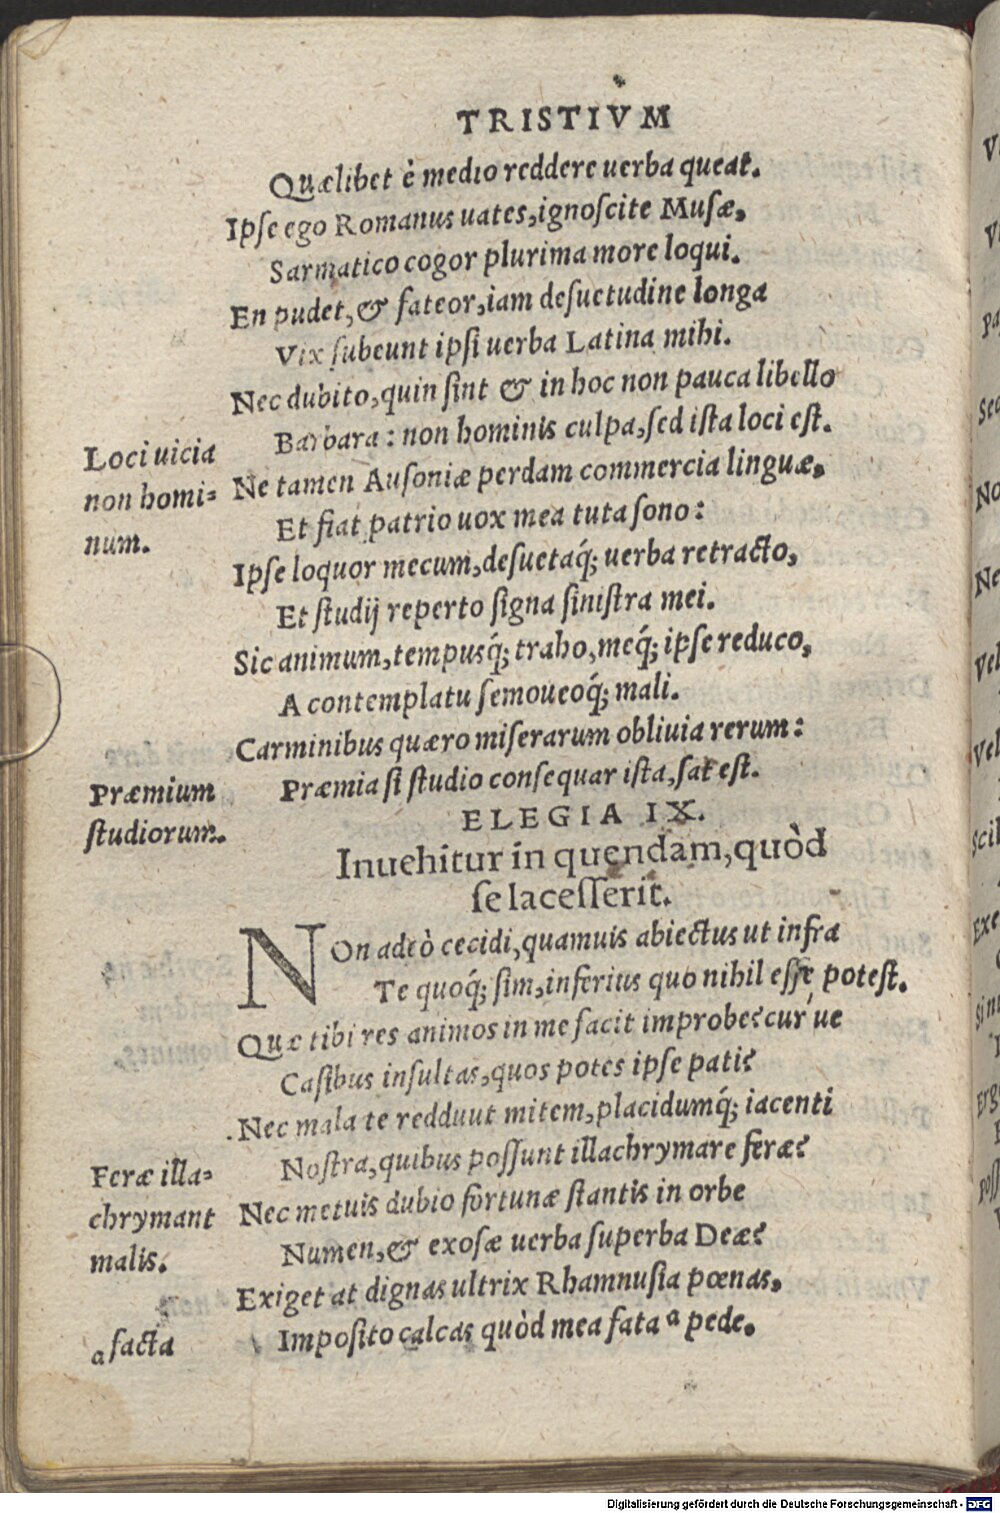 TRISTIVM
Quælibet è medio reddere uerba queat.
Ipse ego Romanus uates, ignoscite Musæ,
Sarmatico cogor plurima more loqui.
En pudet, & fateor, iam desuetudine longa
Vix subeunt ipsi uerba Latina mihi.
Nec dubito, quin sint & in hoc non pauca libello
Barbara: non hominis culpa, sed ista loci est.
Loci uicia
non homi=
num.
Ne tamen Ausoniæ perdam commercia linguæ,
Et fiat patrio uox mea tuta sono:
Ipse loquor mecum, desuetaq́; uerba retracto,
Et studij reperto signa sinistra mei.
Sic animum, tempusq́; traho, meq́; ipse reduco,
A contemplatu semoueoq́; mali.
Carminibus quæro miserarum obliuia rerum:
Præmia si studio consequar ista, sat est.
Præmium
studiorum.
ELEGIA IX.
Inuehitur in quendam, quòd
se lacesserit.
NOn adeò cecidi, quamuis abiectus ut infra
Te quoq́; sim, inferius quo nihil esse potest.
Quæ tibi res animos in me facit improbe? cur ue
Casibus insultas, quos potes ipse pati?
Nec mala te redduut mitem, placidumq́; iacenti
Nostra, quibus possunt illachrymare feræ?
Feræ illa=
chrymant
malis.
Nec metuis dubio fortunæ stantis in orbe
Numen, & exosæ uerba superba Deæ?
Exiget at dignas ultrix Rhamnusia pœnas,
Imposito calcas quòd mea fata a pede.
a facta
Digitalisierung gefördert durch die Deutsche Forschungsgemeinschaft - DFG